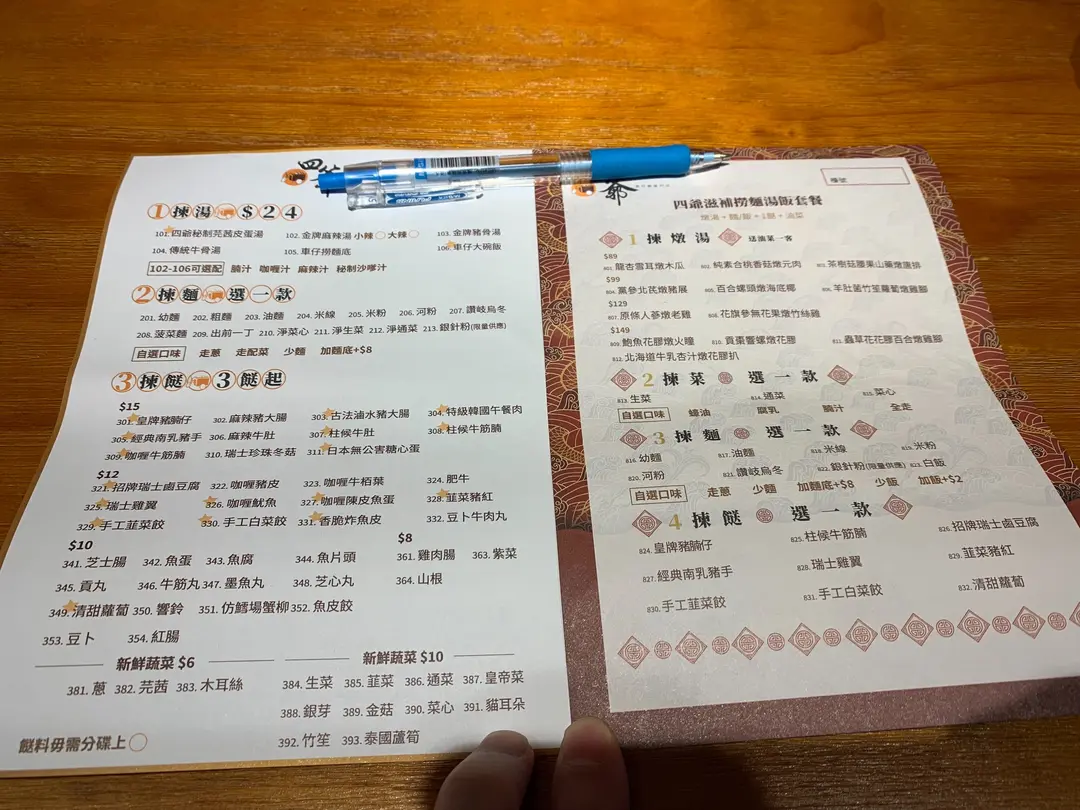 四
1 揀湯 $24
101. 四爺秘制芫茜皮蛋湯 102. 金牌麻辣湯 小辣 大辣 103. 金牌豬骨湯
104. 傳統牛骨湯 105. 車仔撈麵底 106. 車仔大碗飯
102-106可選配 腩汁 咖喱汁 麻辣汁 秘制沙嗲汁
2 揀麵 選一款
201. 幼麵 202. 粗麵 203. 油麵 204. 米線 205. 米粉 206. 河粉 207. 讚岐烏冬
208. 菠菜麵 209. 出前一丁 210. 淨菜心 211. 淨生菜 212. 淨通菜 213. 銀針粉(限量供應)
自選口味 走蔥 走配菜 少麵 加麵底+$8
3 揀餸 3餸起
$15
301. 皇牌豬腩仔 302. 麻辣豬大腸 303. 古法滷水豬大腸 304. 特級韓國午餐肉
305. 經典南乳豬手 306. 麻辣牛肚 307. 柱候牛肚 308. 柱候牛筋腩
309. 咖喱牛筋腩 310. 瑞士珍珠冬菇 311. 日本無公害糖心蛋
$12
321. 招牌瑞士鹵豆腐 322. 咖喱豬皮 323. 咖喱牛栢葉 324. 肥牛
325. 瑞士雞翼 326. 咖喱魷魚 327. 咖喱陳皮魚蛋 328. 韮菜豬紅
329. 手工韮菜餃 330. 手工白菜餃 331. 香脆炸魚皮 332. 豆卜牛肉丸
$10 $8
341. 芝士腸 342. 魚蛋 343. 魚腐 344. 魚片頭 361. 雞肉腸 363. 紫菜
345. 貢丸 346. 牛筋丸 347. 墨魚丸 348. 芝心丸 364. 山根
349. 清甜蘿蔔 350. 響鈴 351. 仿鱈場蟹柳 352. 魚皮餃
353. 豆卜 354. 紅腸
新鮮蔬菜 $6 新鮮蔬菜 $10
381. 蔥 382. 芫茜 383. 木耳絲 384. 生菜 385. 韮菜 386. 通菜 387. 皇帝菜
388. 銀芽 389. 金菇 390. 菜心 391. 貓耳朵
392. 竹笙 393. 泰國蘆筍
餸料毋需分碟上
爺
檯號
四爺滋補撈麵湯飯套餐
燉湯+麵/飯+1餸+油菜
1 揀燉湯 送油菜一客
$89
801. 龍杏雪耳燉木瓜 802. 純素合桃香菇燉元肉 803. 茶樹菇腰果山藥燉唐排
$99
804. 黨參北芪燉豬展 805. 百合螺頭燉海底椰 806. 羊肚菌竹笙蘿蔔燉雞腳
$129
807. 原條人蔘燉老雞 808. 花旗參無花果燉竹絲雞
$149
809. 鮑魚花膠燉火瞳 810. 頁棗響螺燉花膠 811. 蟲草花花膠百合燉雞腳
812. 北海道牛乳杏汁燉花膠扒
2 揀菜 選一款
813. 生菜 814. 通菜 815. 菜心
自選口味 蠔油 腐乳 腩汁 全走
3 揀麵 選一款
816. 幼麵 817. 油麵 818. 米線 819. 米粉
820. 河粉 821. 讚岐烏冬 822. 銀針粉(限量供應) 823. 白飯
自選口味 走蔥 少麵 加麵底+$8 少飯 加飯+$2
4 揀餸 選一款
824. 皇牌豬腩仔 825. 柱候牛筋腩 826. 招牌瑞士鹵豆腐
827. 經典南乳豬手 828. 瑞士雞翼 829. 韮菜豬紅
830. 手工韮菜餃 831. 手工白菜餃 832. 清甜蘿蔔